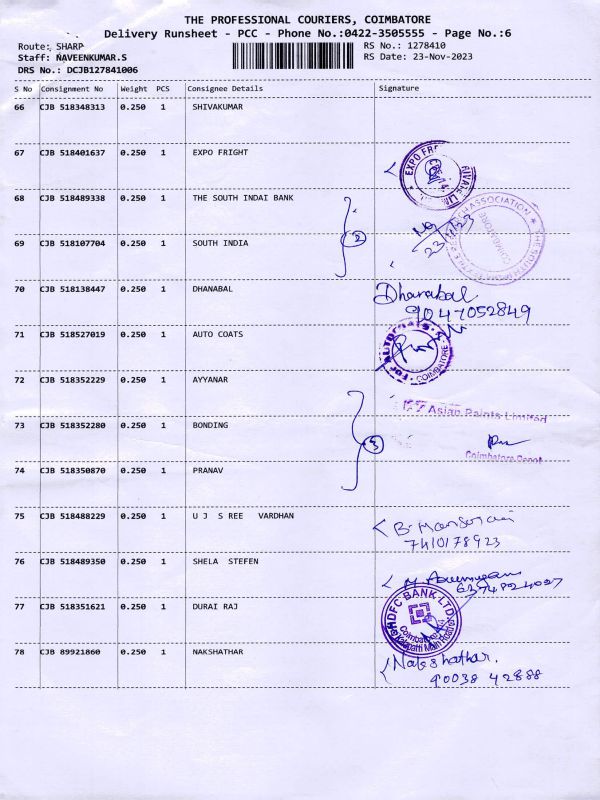 THE PROFESSIONAL COURIERS, COIMBATORE
Delivery Runsheet - PCC - Phone No.:0422-3505555 - Page No.:6
Route: SHARP RS No.: 1278410
Staff: NAVEENKUMAR.S RS Date: 23-Nov-2023
DRS No.: DCJB127841006
S No Consignment No Weight PCS Consignee Details Signature
66 CJB 518348313 0.250 1 SHIVAKUMAR
67 CJB 518401637 0.250 1 EXPO FRIGHT
EXPO
68 CJB 518489338 0.250 1 THE SOUTH INDAI BANK
ASSOCIATION
COIMBATORE
23/11/23
2
69 CJB 518107704 0.250 1 SOUTH INDIA
70 CJB 518138447 0.250 1 DHANABAL Dhanabal
9047052849
71 CJB 518527019 0.250 1 AUTO COATS
COIMBATORE
72 CJB 518352229 0.250 1 AYYANAR
Asian Paints Limited
73 CJB 518352280 0.250 1 BONDING
3
Coimbatore Depot
74 CJB 518350870 0.250 1 PRANAV
75 CJB 518488229 0.250 1 U J S REE VARDHAN
7410178923
76 CJB 518489350 0.250 1 SHELA STEFEN
6374824027
77 CJB 518351621 0.250 1 DURAI RAJ
HDFC BANK LTD
78 CJB 89921860 0.250 1 NAKSHATHAR Nakshathar.
90038 42888